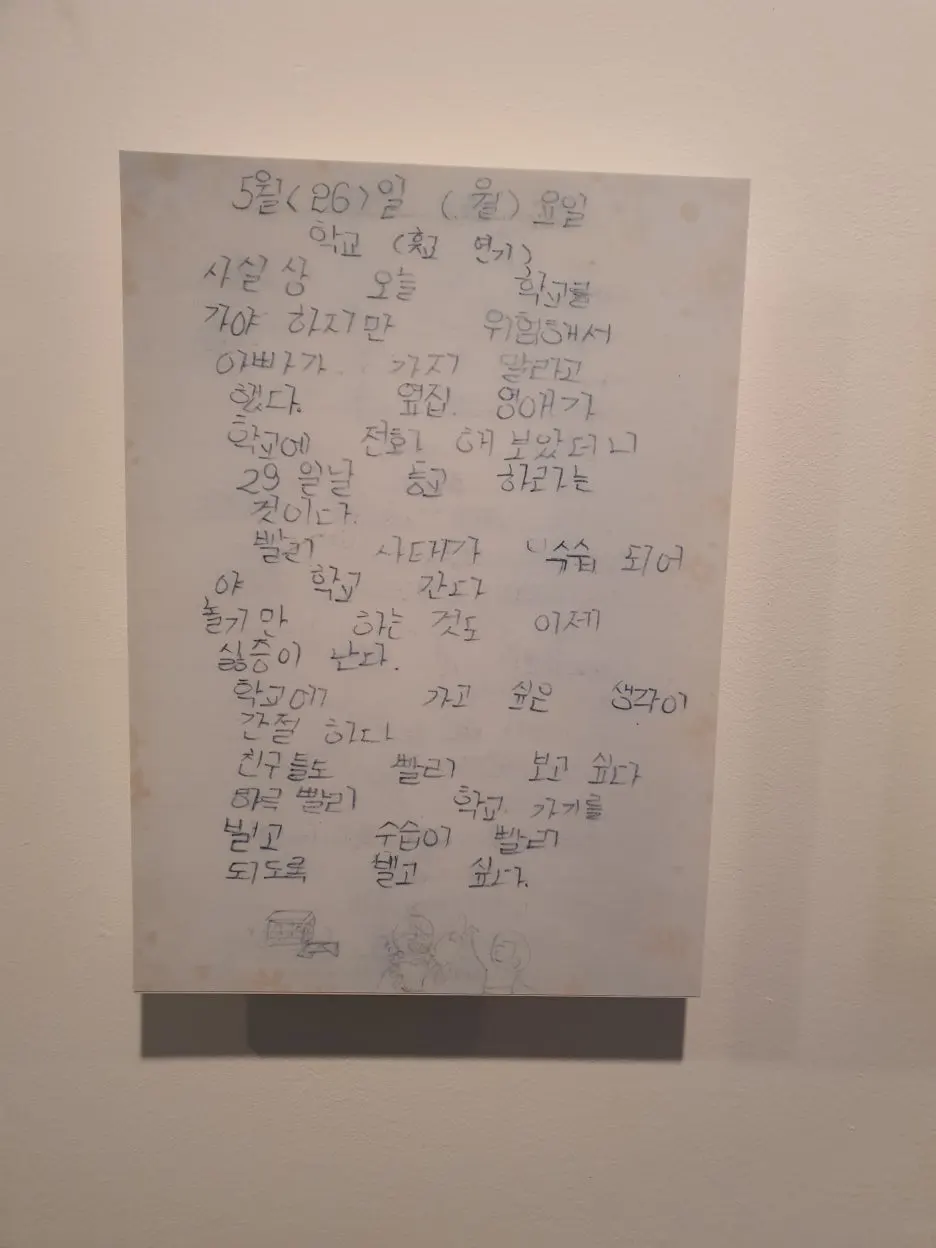 5월(26)일 (월)요일
학교 (휴교 연기)
사실 상 오늘 학교를
가야 하지만 위험해서
아빠가 가지 말라고
했다. 옆집 영애가
학교에 전화 해 보았더니
29일날 등교 하라는
것이다.
빨리 사태가 수습 되어
야 학교 간다
놀기만 하는 것도 이제
싫증이 난다.
학교에 가고 싶은 생각이
간절 하다
친구들도 빨리 보고 싶다
하루 빨리 학교 가기를
빌고 수습이 빨리
되도록 빌고 싶다.